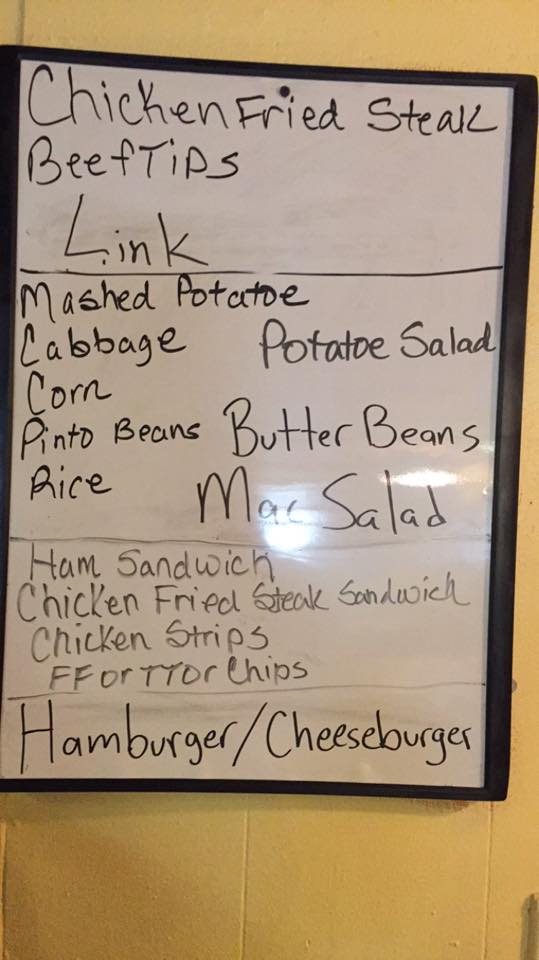 Chicken Fried Steak
Beef Tips
Link
Mashed Potatoe
Cabbage Potatoe Salad
Corn
Pinto Beans Butter Beans
Rice Mac Salad
Ham Sandwich
Chicken Fried Steak Sandwich
Chicken Strips
FF or TT or Chips
Hamburger/Cheeseburger